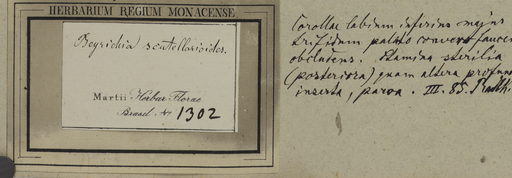 HERBARIUM REGIUM MONACENSE
Beyrichia scutellarioides.
Martii Herbar. Florae
Brasil. No 1302
Corollae labium inferius majus
trifidum palato convexo faucem
obcludens. Stamina sterilia
(posteriora) quam altera profund
inserta, parva. III. 85. Radlk.